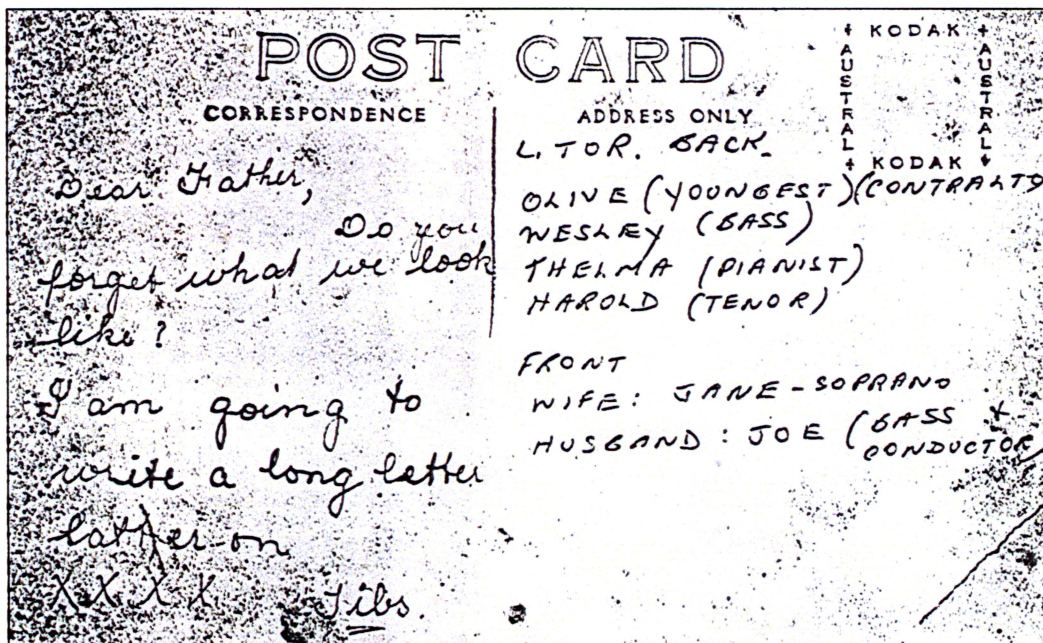 POST CARD
CORRESPONDENCE
ADDRESS ONLY
KODAK
AUSTRAL
AUSTRAL
KODAK
Dear Father,
Do you
forget what we look
like?
I am going to
write a long letter
later on
XXXX Tibs.
L. TO R. BACK.
OLIVE (YOUNGEST) (CONTRALTO)
WESLEY (BASS)
THELMA (PIANIST)
HAROLD (TENOR)
FRONT
WIFE: JANE - SOPRANO
HUSBAND: JOE (BASS +
CONDUCTOR)